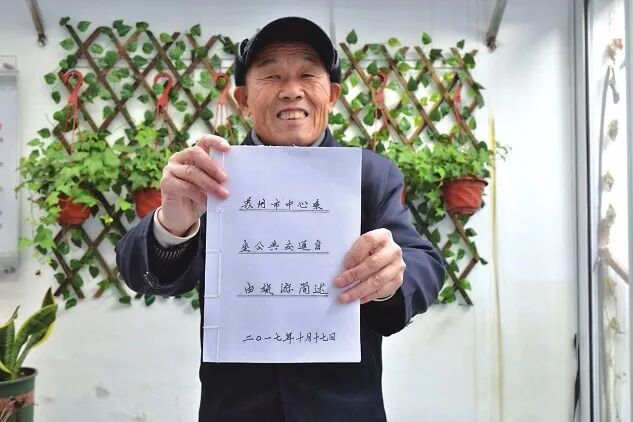 苏州市中心乘
坐公共交通自
由旅游简述
二〇一七年十月十七日